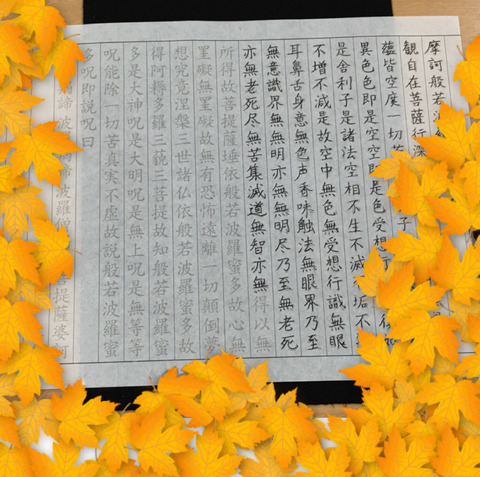 摩訶般若波
観自在菩薩行深
蘊皆空度一切苦子
異色色即是空空即是色受想行復
是舎利子是諸法空相不生不滅不垢不
不増不減是故空中無色無受想行識無眼
耳鼻舌身意無色声香味触法無眼界乃至
無意識界無無明亦無無明尽乃至無老死
亦無老死尽無苦集滅道無智亦無得以無
所得故菩提薩埵依般若波羅蜜多故心無
罣礙無罣礙故無有恐怖遠離一切顛倒夢
想究竟涅槃三世諸仏依般若波羅蜜多故
得阿耨多羅三藐三菩提故知般若波羅蜜
多是大神呪是大明呪是無上呪是無等等
呪能除一切苦真実不虚故説般若波羅蜜
多呪即説呪曰
諦波諦波羅僧提薩婆